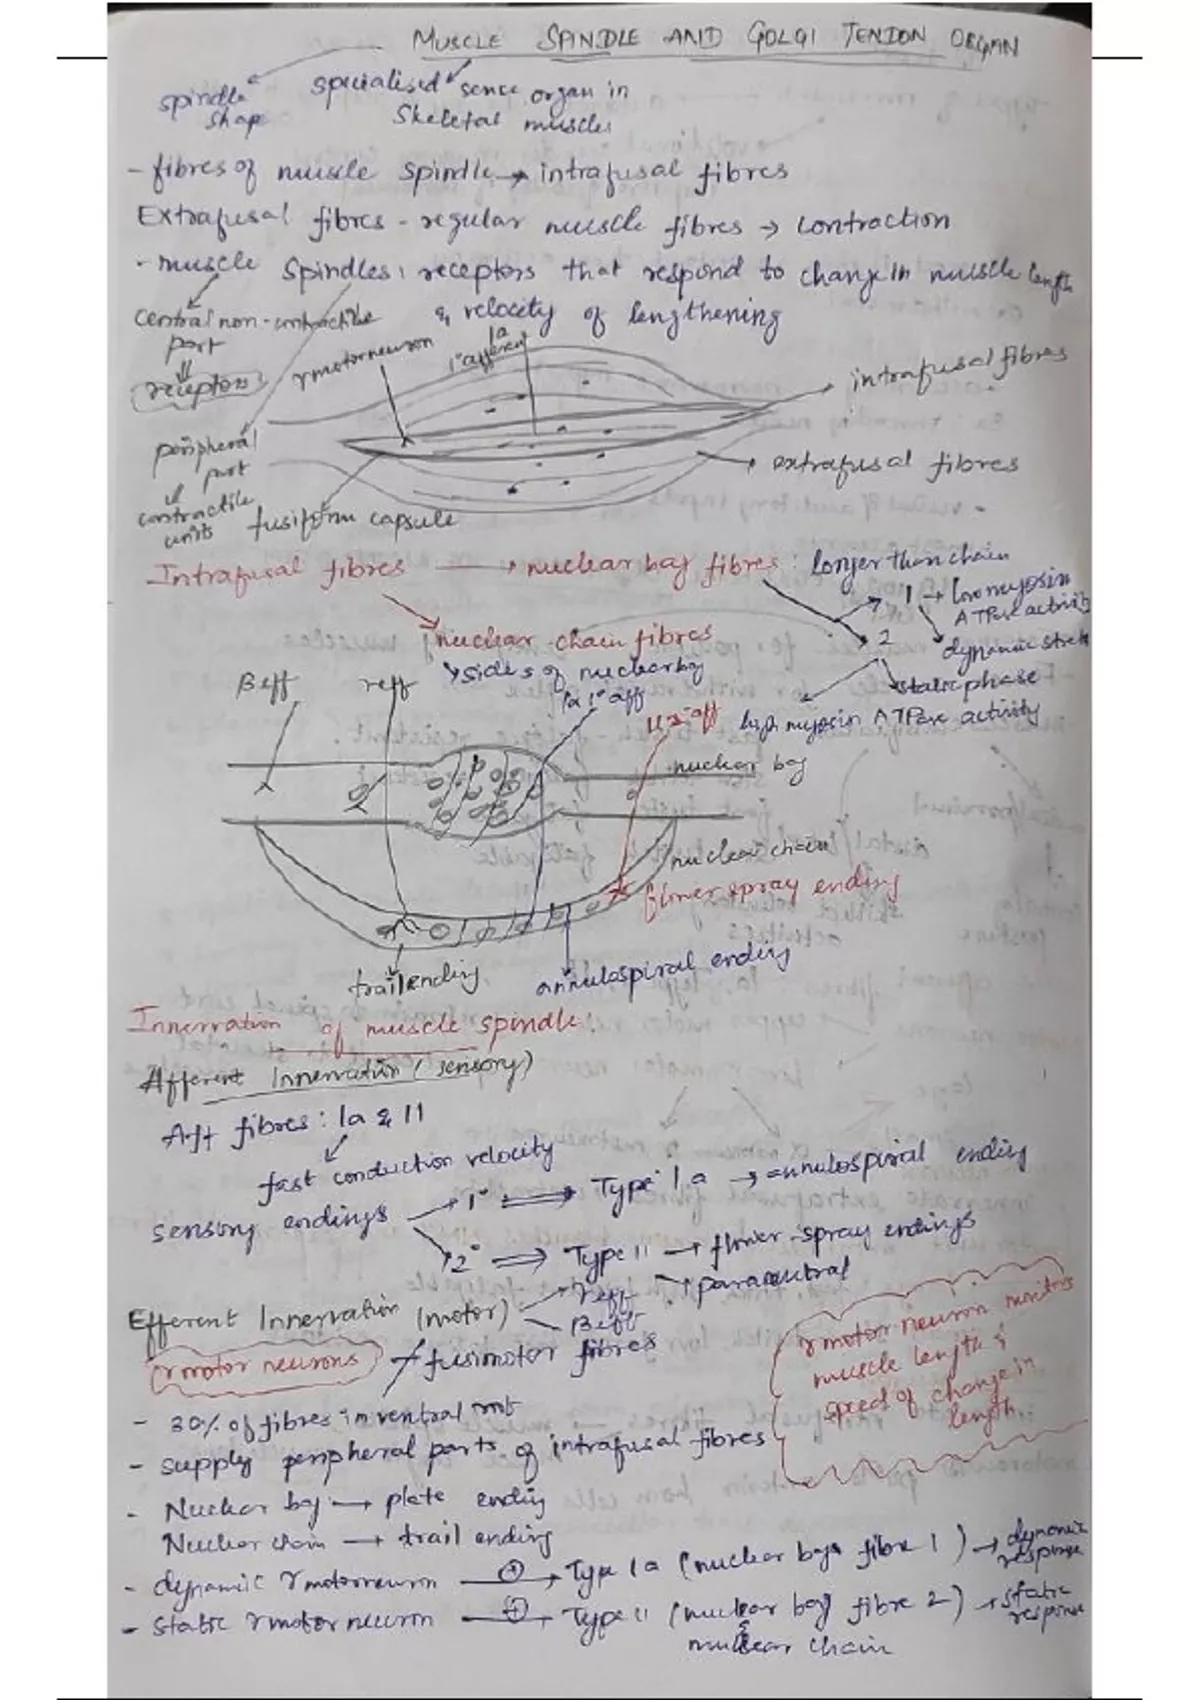 MUSCLE SPINDLE AND GOLGI TENDON ORGAN
spindle shape
specialised sence organ in
skeletal muscles
- fibres of muscle spindle → intrafusal fibres
Extrafusal fibres - regular muscle fibres → contraction
- muscle spindles: receptors that respond to change in muscle length
& velocity of lengthening
central non-contractile
part
⇓
receptors
γ motor neuron
1° afferent
Ia
intrafusal fibres
peripheral
part
⇓
contractile
units
extrafusal fibres
fusiform capsule
Intrafusal fibres → nuclear bag fibres: longer than chain
1 → low myosin
ATPase activity
nuclear chain fibres
2
dynamic stretch
sides of nuclear bag
static phase
β eff
γ eff
Ia 1° aff
II 2° aff
high myosin ATPase activity
nuclear bag
nuclear chain
flower spray ending
trail ending
annulospiral ending
Innervation of muscle spindle:
Afferent Innervation (sensory)
Aff fibres: Ia & II
fast conduction velocity
sensory endings → 1° ⇒ Type Ia → annulospiral ending
2° ⇒ Type II → flower-spray endings
→ paracentral
Efferent Innervation (motor):
γ eff
β eff
γ motor neurons → fusimotor fibres
γ motor neuron monitors
muscle length &
speed of change in
length
- 30% of fibres in ventral root
- supply peripheral parts of intrafusal fibres
- Nuclear bag → plate ending
Nuclear chain → trail ending
- dynamic γ motor neuron ⊕→ Type Ia (nuclear bag fibre 1) → dynamic response
- static γ motor neuron ⊕→ Type II (nuclear bag fibre 2) → static response
& nuclear chain